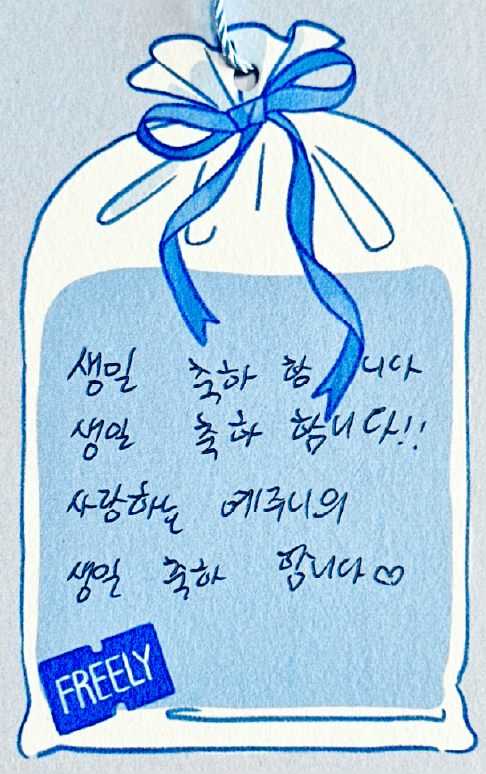 생일 축하 합니다
생일 축하 합니다!!
사랑하는 예주니의
생일 축하 합니다♡
FREELY